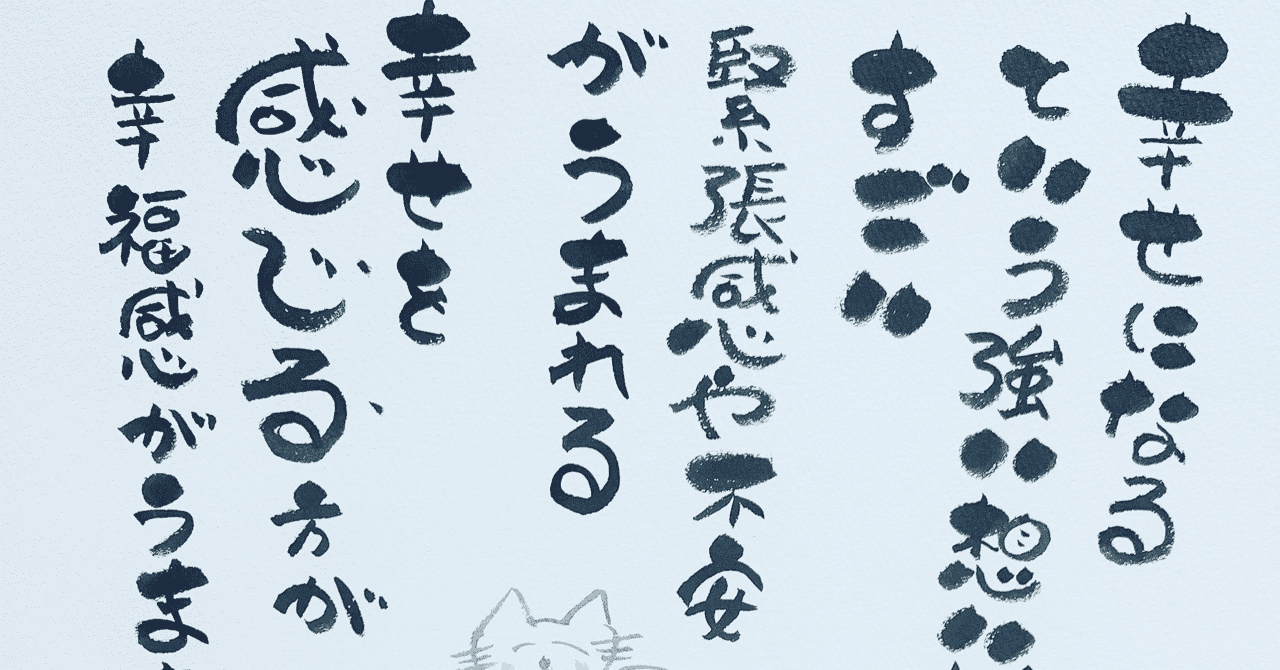 幸せになる
という強い想い
すごい
緊張感や不安
がうまれる
幸せを
感じる方が
幸福感がうま